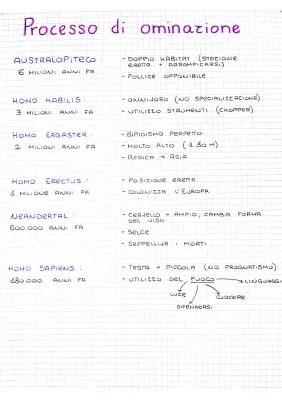 Processo di ominazione
AUSTRALOPITECO: - DOPPIO HABITAT (STAZIONE
6 MILIONI ANNI FA ERETTA + ARRAMPICARSI)
- POLLICE OPPONIBILE
HOMO HABILIS: - ONNIVORO (NO SPECIALIZZAZIONE)
3 MILIONI ANNI FA - UTILIZZO STRUMENTI (CHOPPER)
HOMO ERGASTER: - BIPIDISMO PERFETTO
2 MILIONI ANNI FA - MOLTO ALTO (1.80 M)
- AFRICA → ASIA
HOMO ERECTUS: - POSIZIONE ERETTA
1 MILIONE ANNI FA - COLONIZZA L'EUROPA
NEANDERTAL: - CERVELLO + AMPIO, CAMBIA FORMA
600.000 ANNI FA DEL VISO
- SELCE
- SEPPELLIVA I MORTI
HOMO SAPIENS: - TESTA + PICCOLA (NO PROGNATISMO)
130.000 ANNI FA - UTILIZZO DEL FUOCO → LINGUAGGI
LUCE CUOCERE
DIFENDERSI